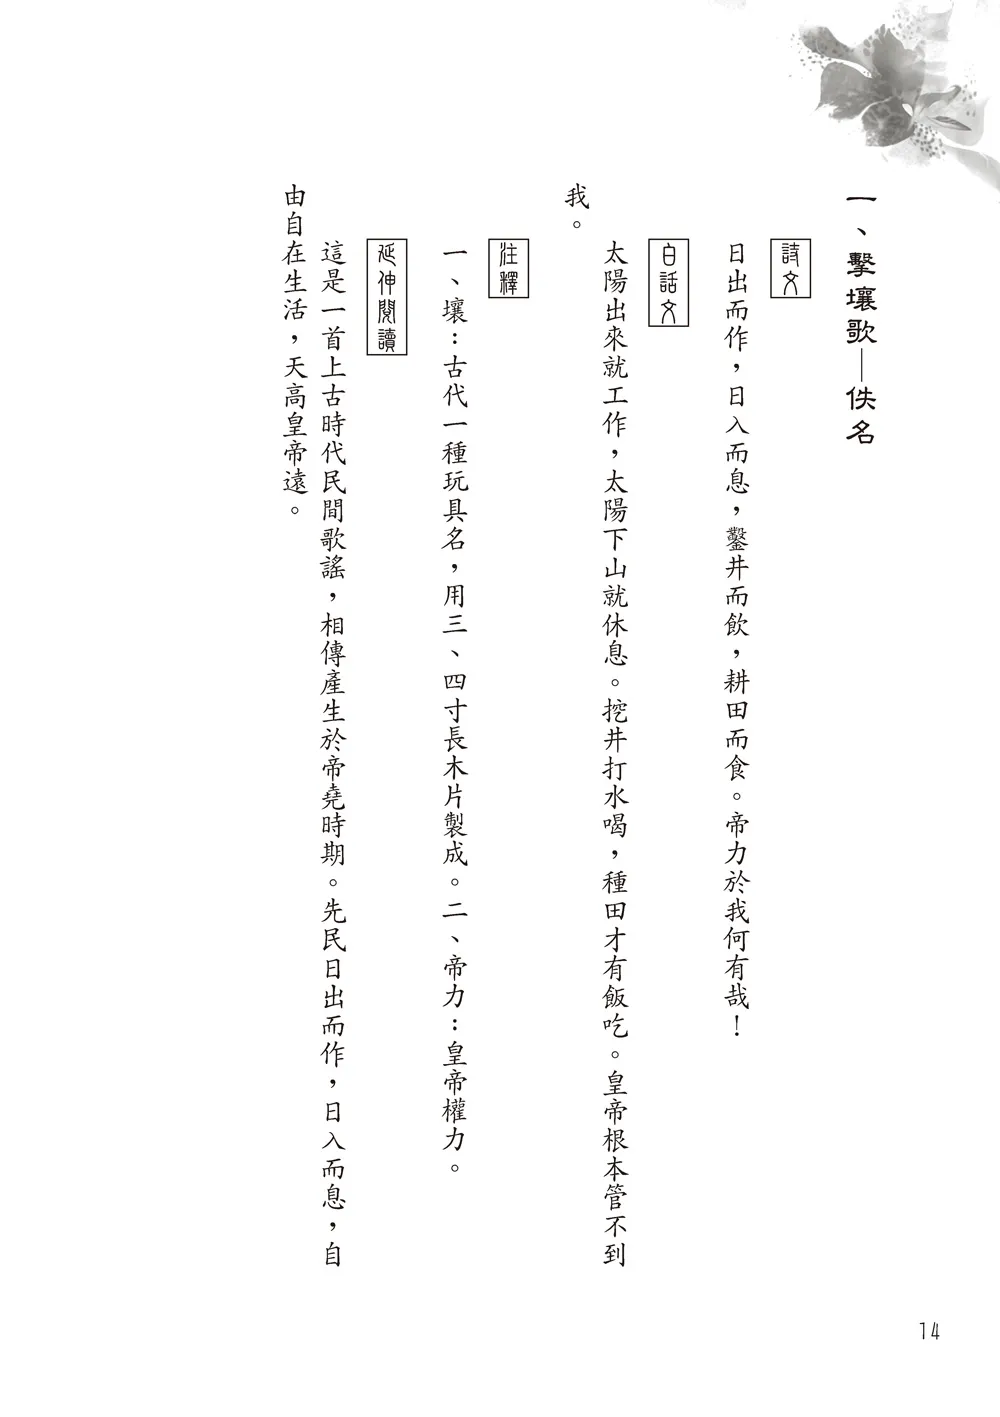 一、擊壤歌—佚名
詩文
日出而作，日入而息，鑿井而飲，耕田而食。帝力於我何有哉！
白話文
太陽出來就工作，太陽下山就休息。挖井打水喝，種田才有飯吃。皇帝根本管不到
我。
注釋
一、壤：古代一種玩具名，用三、四寸長木片製成。二、帝力：皇帝權力。
延伸閱讀
這是一首上古時代民間歌謠，相傳產生於帝堯時期。先民日出而作，日入而息，自
由自在生活，天高皇帝遠。
14